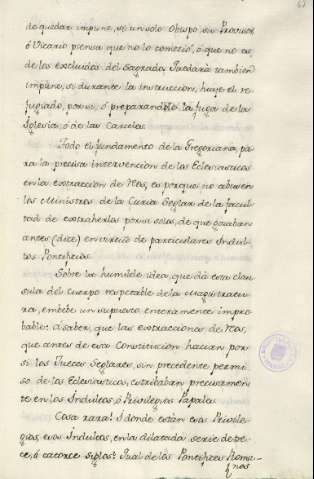 de quedar impune, si un solo Obispo, su Provisor
ó Vicario piensa que no lo cometió, ó que no es
de los excluidos del Sagrado. Quedará tambien
impune, si durante la instruccion, huye el re-
fugiado, por si, ó preparandole la fuga de la
Iglesia, ó de las Carceles.
Todo el fundamento de la Gregoriana, pa
ra la precisa intervencion de los Eclesiasticos
en la extraccion de Reos, es porque no abusen
los Ministros de la Curia Seglar de la facul
tad de extraherlos por si solos, de que gozaban
antes (dice) en virtud de particulares Indul
tos Pontificios.
Sobre la humilde idea, que dá esta clau
sula del cuerpo respetable de la Magistratu
ra, embebe un supuesto enteramente impro
bable: á saber, que las extracciones de Reos,
que antes de esa Constitucion hacian por
si los Jueces Seglares, sin precedente permi
so de los Eclesiasticos, estribaban precisamen
te en los Indultos, ó Privilegios Papales.
Cosa rara! Y donde están esos Privile
gios, esos Indultos, en la dilatada serie de tre
ce, ó catorce siglos? Qual de los Pontifices Roma-
nos